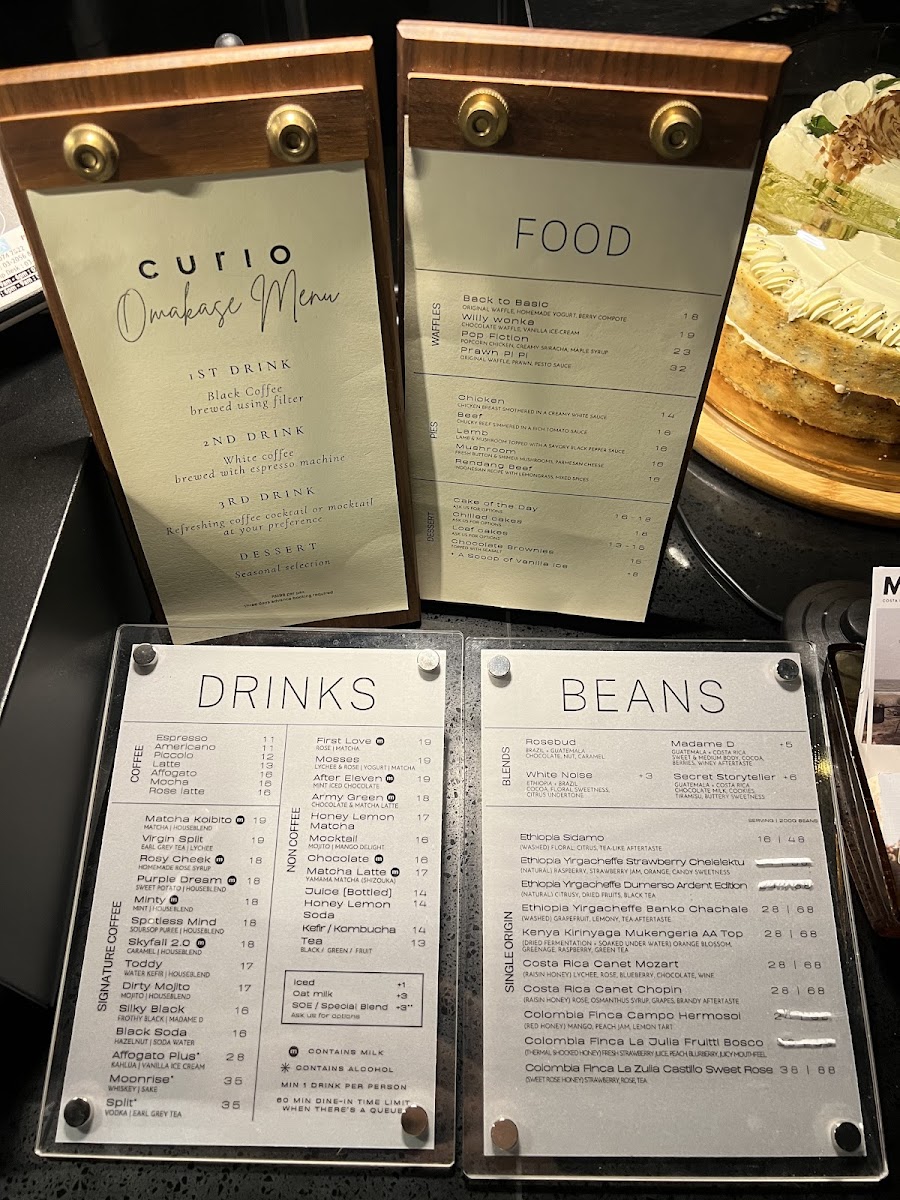 curio
Omakase Menu
1ST DRINK
Black Coffee
brewed using filter
2ND DRINK
White coffee
brewed with espresso machine
3RD DRINK
Refreshing coffee cocktail or mocktail
at your preference
DESSERT
Seasonal selection
FOOD
WAFFLES
Back to Basic 18
ORIGINAL WAFFLE, HOMEMADE YOGURT, BERRY COMPOTE
Willy Wonka 19
CHOCOLATE WAFFLE, VANILLA ICE-CREAM
Pop Fiction 23
POPCORN CHICKEN, CREAMY SRIRACHA, MAPLE SYRUP
Prawn Pi Pi 32
ORIGINAL WAFFLE, PRAWN, PESTO SAUCE
PIES
Chicken 14
CHICKEN BREAST SMOTHERED IN A CREAMY WHITE SAUCE
Beef 16
CHUCKY BEEF SIMMERED IN A RICH TOMATO SAUCE
Lamb 16
LAMB & MUSHROOM TOPPED WITH A SAVORY BLACK PEPPER SAUCE
Mushroom 16
FRESH BUTTON & SHIMEJI MUSHROOMS, PARMESAN CHEESE
Rendang Beef 16
INDONESIAN RECIPE WITH LEMONGRASS, MIXED SPICES
DESSERT
Cake of the Day 16 - 18
ASK US FOR OPTIONS
Chilled cakes 16
ASK US FOR OPTIONS
Loaf cakes 13 - 15
ASK US FOR OPTIONS
Chocolate Brownies 15
TOPPED WITH SEASALT
+ A Scoop of Vanilla Ice +8
DRINKS
COFFEE
Espresso 11
Americano 11
Piccolo 12
Latte 13
Affogato 16
Mocha 16
Rose latte 16
SIGNATURE COFFEE
Matcha Koibito m 19
MATCHA | HOUSEBLEND
Virgin Split 19
EARL GREY TEA | LYCHEE
Rosy Cheek m 18
HOMEMADE ROSE SYRUP
Purple Dream m 18
SWEET POTATO | HOUSEBLEND
Minty m 18
MINT | HOUSEBLEND
Spotless Mind 18
SOURSOP PUREE | HOUSEBLEND
Skyfall 2.0 m 18
CARAMEL | HOUSEBLEND
Toddy 17
WATER KEFIR | HOUSEBLEND
Dirty Mojito 17
MOJITO | HOUSEBLEND
Silky Black 16
FROTHY BLACK | MADAME D
Black Soda 16
HAZELNUT | SODA WATER
Affogato Plus* 28
KAHLUA | VANILLA ICE CREAM
Moonrise* 35
WHISKEY | SAKE
Split* 35
VODKA | EARL GREY TEA
NON COFFEE
First Love m 19
ROSE | MATCHA
Mosses 19
LYCHEE & ROSE | YOGURT | MATCHA
After Eleven m 19
MINT ICED CHOCOLATE
Army Green m 18
CHOCOLATE & MATCHA LATTE
Honey Lemon 17
Matcha
Mocktail 16
MOJITO | MANGO DELIGHT
Chocolate m 16
Matcha Latte m 17
YAMAMA MATCHA (SHIZOUKA)
Juice (Bottled) 14
Honey Lemon 14
Soda
Kefir / Kombucha 14
Tea 13
BLACK / GREEN / FRUIT
Iced +1
Oat milk +3
SOE / Special Blend +3**
Ask us for options
m CONTAINS MILK
* CONTAINS ALCOHOL
MIN 1 DRINK PER PERSON
60 MIN DINE-IN TIME LIMIT
WHEN THERE'S A QUEUE
BEANS
BLENDS
Rosebud
BRAZIL + GUATEMALA
CHOCOLATE, NUT, CARAMEL
White Noise +3
ETHIOPIA + BRAZIL
COCOA, FLORAL SWEETNESS,
CITRUS UNDERTONE
Madame D +5
GUATEMALA + COSTA RICA
SWEET & MEDIUM BODY, COCOA,
BERRIES, WINEY AFTERTASTE
Secret Storyteller +6
GUATEMALA + COSTA RICA
CHOCOLATE MILK, COOKIES,
TIRAMISU, BUTTERY SWEETNESS
SERVING | 200G BEANS
SINGLE ORIGIN
Ethiopia Sidamo 16 | 48
(WASHED) FLORAL, CITRUS, TEA-LIKE AFTERTASTE
Ethiopia Yirgacheffe Strawberry Chelelektu
(NATURAL) RASPBERRY, STRAWBERRY JAM, ORANGE, CANDY SWEETNESS
Ethiopia Yirgacheffe Dumerso Ardent Edition
(NATURAL) CITRUSY, DRIED FRUITS, BLACK TEA
Ethiopia Yirgacheffe Banko Chachale 28 | 68
(WASHED) GRAPEFRUIT, LEMONY, TEA AFTERTASTE
Kenya Kirinyaga Mukengeria AA Top 28 | 68
(DRIED FERMENTATION + SOAKED UNDER WATER) ORANGE BLOSSOM,
GREENAGE, RASPBERRY, GREEN TEA
Costa Rica Canet Mozart 28 | 68
(RAISIN HONEY) LYCHEE, ROSE, BLUEBERRY, CHOCOLATE, WINE
Costa Rica Canet Chopin 28 | 68
(RAISIN HONEY) ROSE, OSMANTHUS SYRUP, GRAPES, BRANDY AFTERTASTE
Colombia Finca Campo Hermosol
(RED HONEY) MANGO, PEACH JAM, LEMON TART
Colombia Finca La Julia Fruitti Bosco
(THERMAL SHOCKED HONEY) FRESH STRAWBERRY JUICE, PEACH, BLURBERRY, JUICY MOUTHFEEL
Colombia Finca La Zulia Castillo Sweet Rose 38 | 88
(SWEET ROSE HONEY) STRAWBERRY, ROSE, TEA